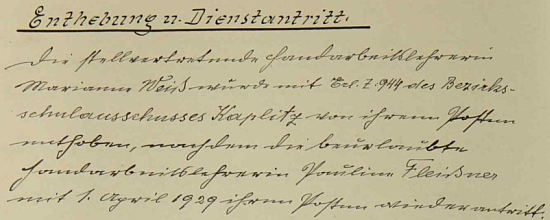 Enthebung u. Dienstantritt.
Die stellvertretende Handarbeitslehrerin
Marianne Weiß wurde mit Erl. Z. 944 des Bezirks-
schulausschusses Kaplitz von ihrem Posten
enthoben, nachdem die beurlaubte
Handarbeitslehrerin Pauline Fleißner
mit 1. April 1929 ihren Posten wieder antritt.